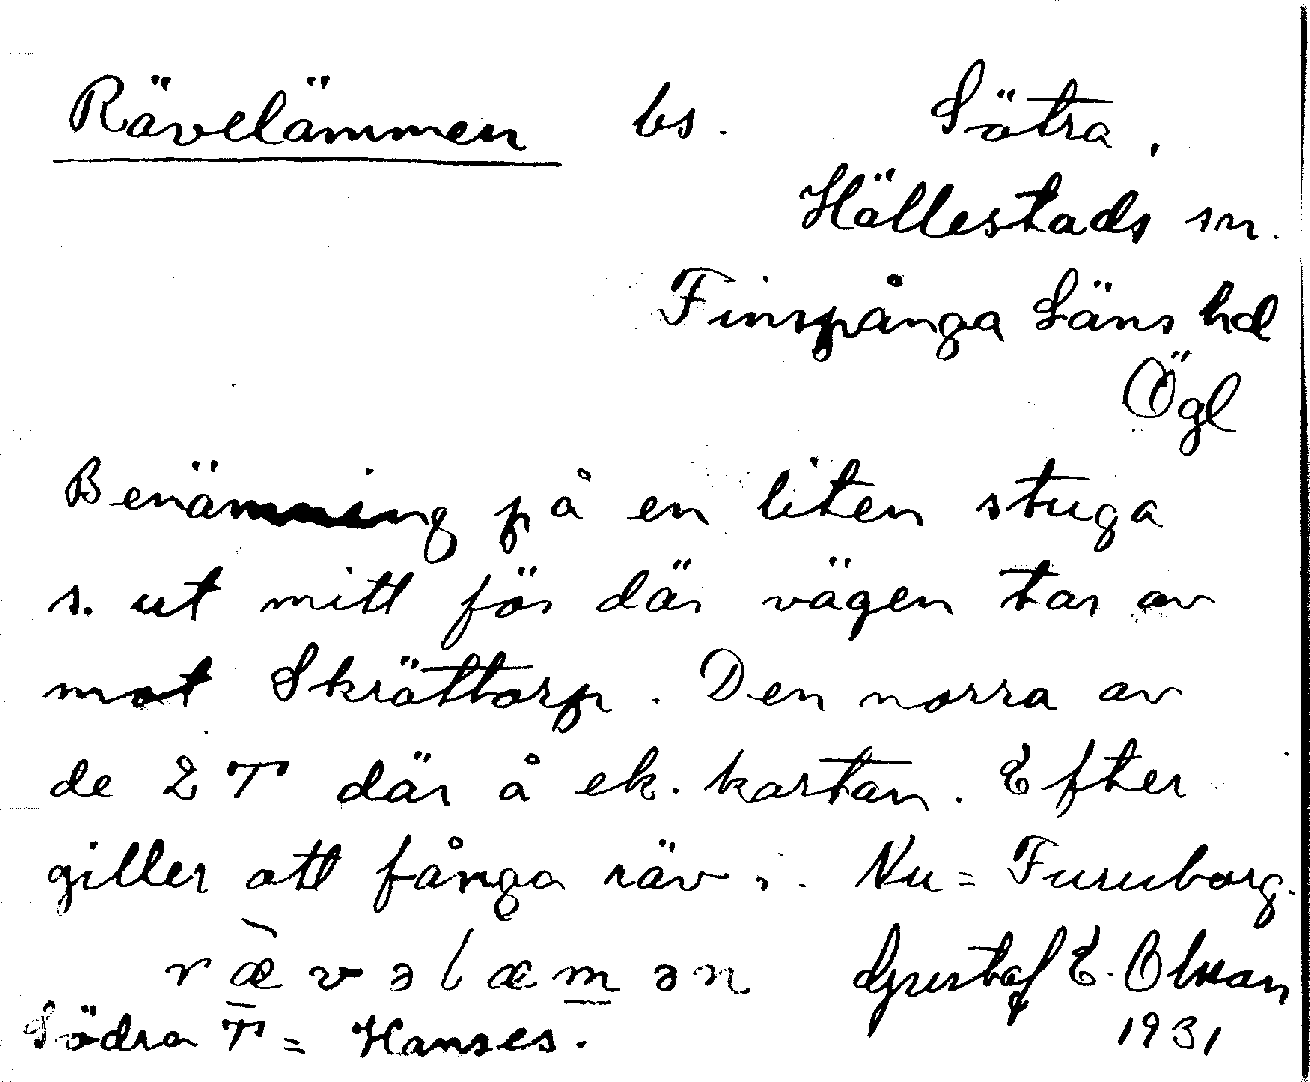 Rävelämmen bs. Sätra,
Hällestads sn.
Finspånga Läns hd
Ögl
Benämning på en liten stuga
s. ut mitt för där vägen tar av
mot Skrättorp. Den norra av
de 2 T där å ek. kartan. Efter
giller att fånga räv i. Nu = Furuborg.
ræ̀vəlæmən Gustaf E. Olsson
Södra T = Hanses. 1931